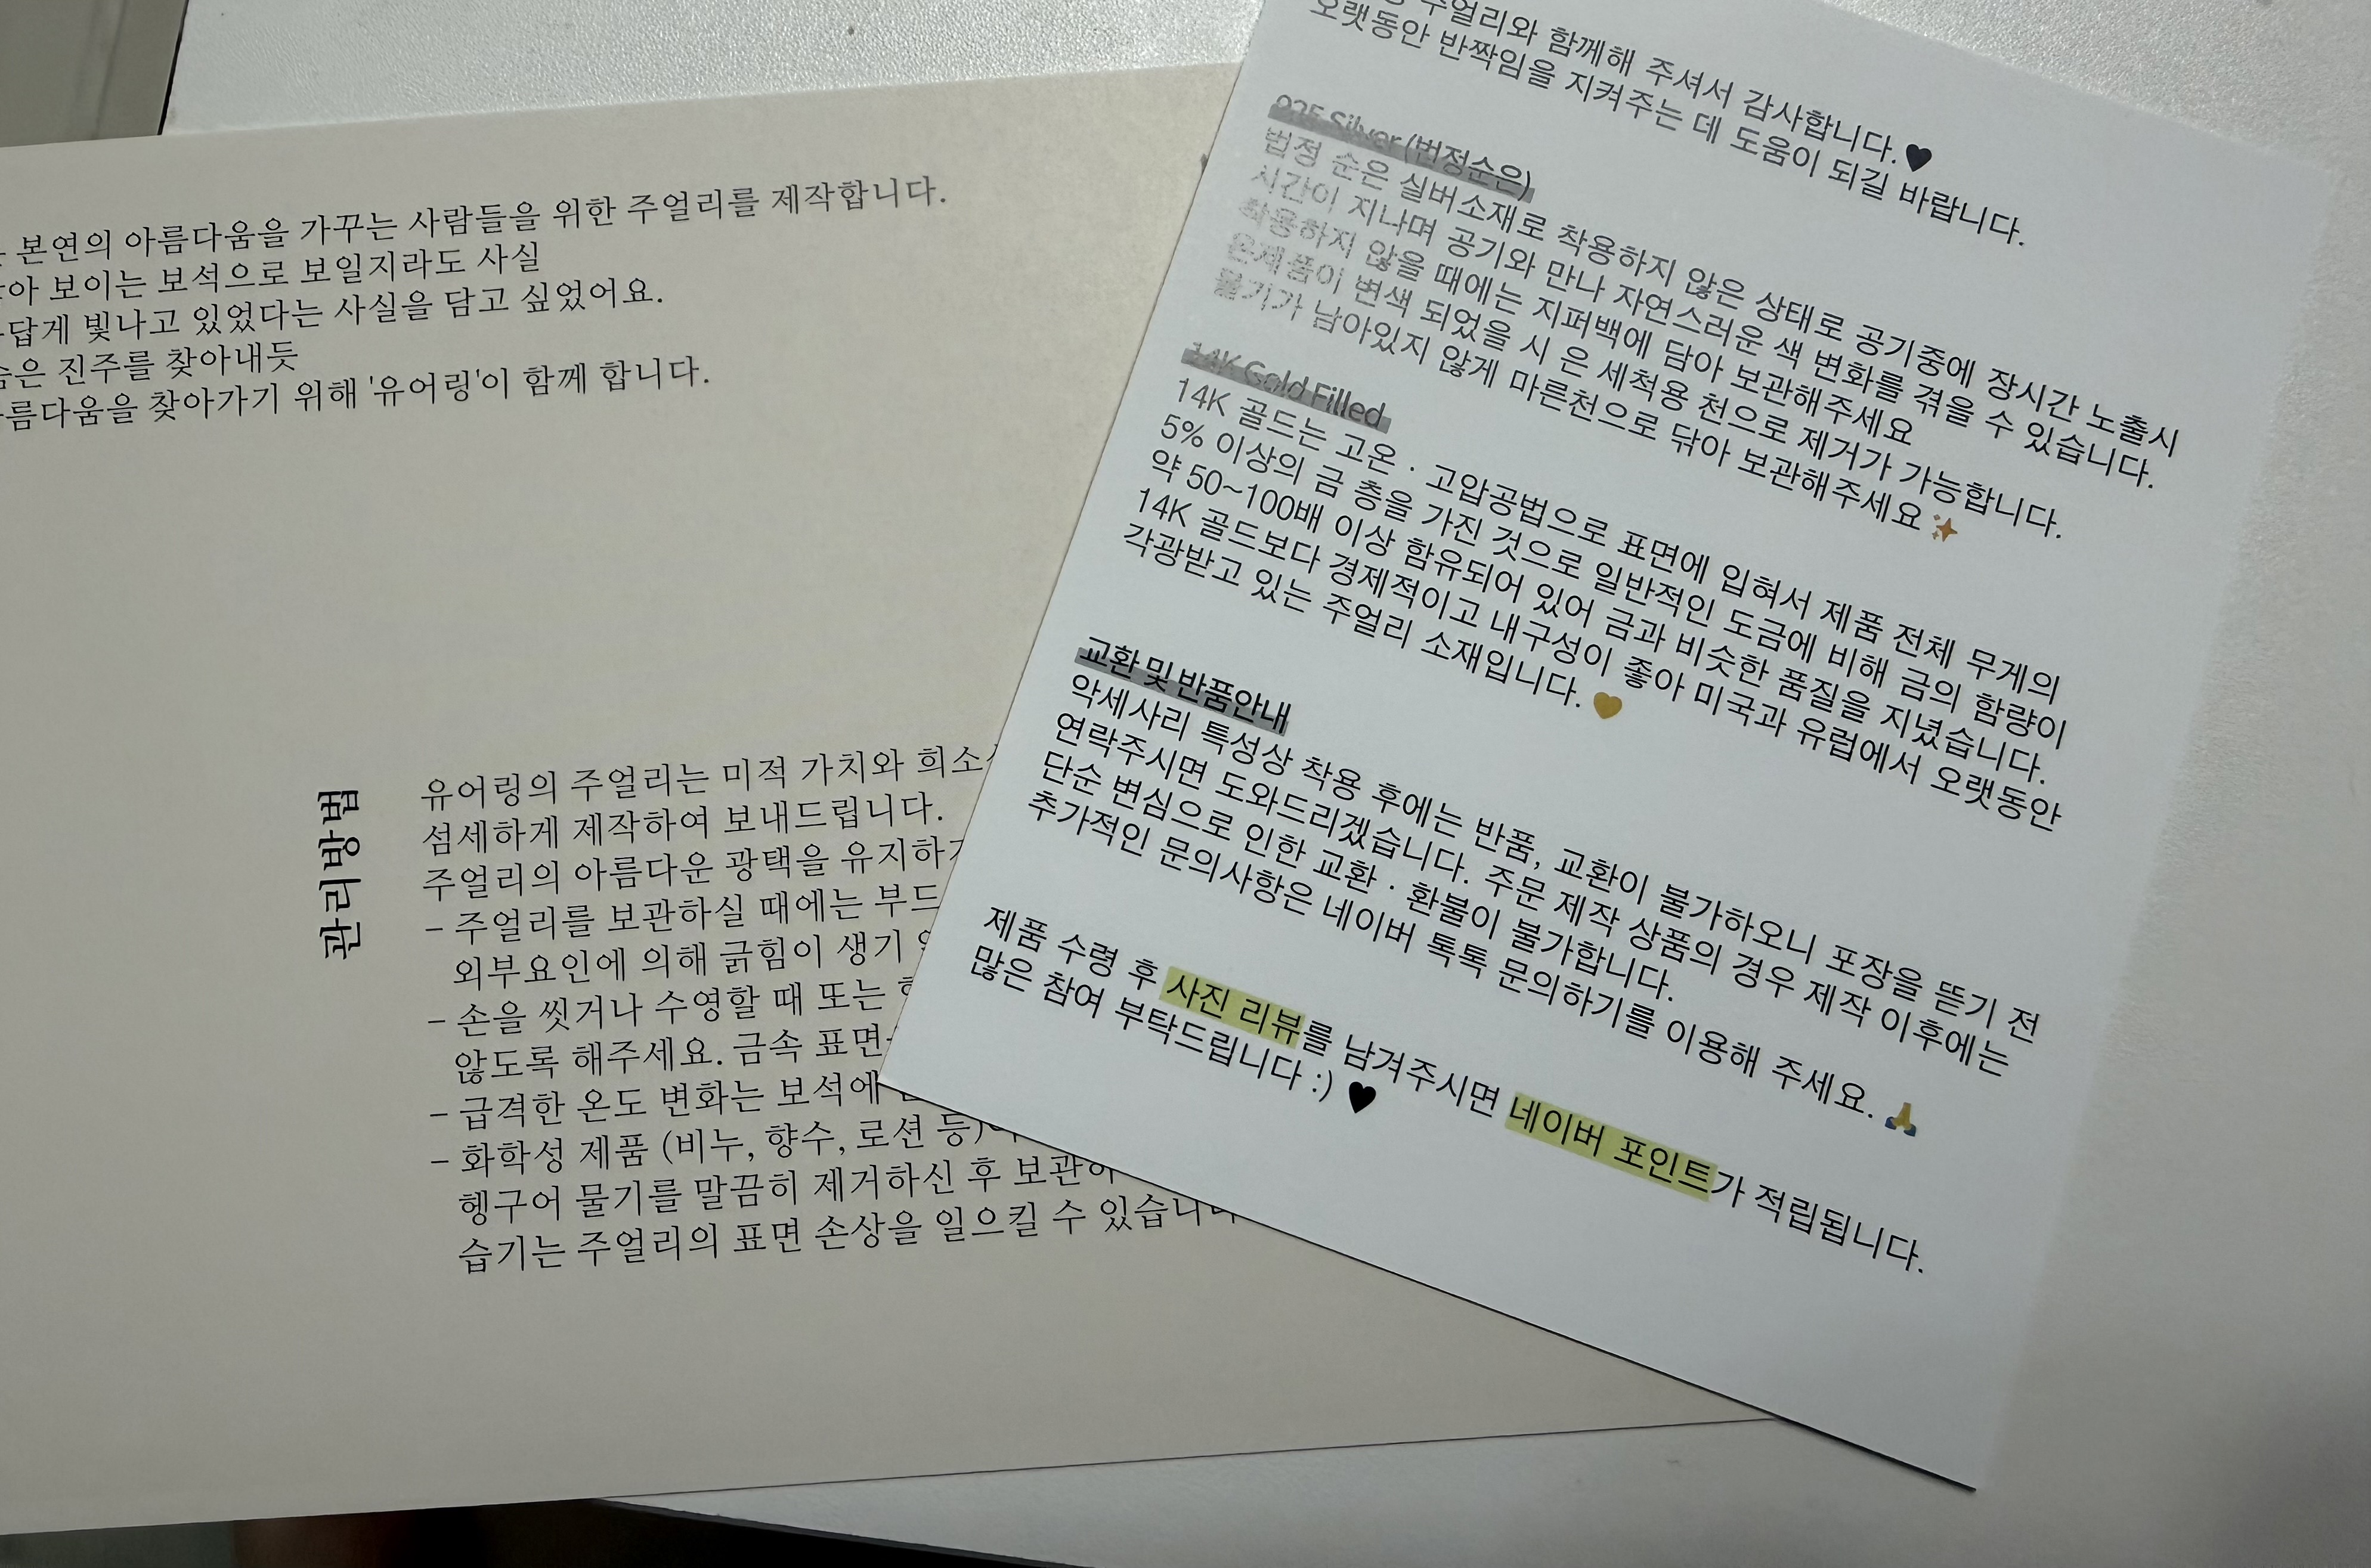 본연의 아름다움을 가꾸는 사람들을 위한 주얼리를 제작합니다.
보이는 보석으로 보일지라도 사실
빛나고 있었다는 사실을 담고 싶었어요.
진주를 찾아내듯
찾아가기 위해 '유어링'이 함께 합니다.
관리방법
유어링의 주얼리는 미적 가치와
섬세하게 제작하여 보내드립니다.
주얼리의 아름다운 광택을
– 주얼리를 보관하실 때에는
외부요인에 의해 긁힘이 생기
– 손을 씻거나 수영할 때 또는
않도록 해주세요. 금속
– 급격한 온도 변화는 보석에
– 화학성 제품 (비누, 향수, 로션 등)
헹구어 물기를 말끔히 제거하신 후
습기는 주얼리의 표면 손상을 일으킬 수
주얼리와 함께해 주셔서 감사합니다.🖤
오랫동안 반짝임을 지켜주는 데 도움이 되길 바랍니다.
925 Silver (법정순은)
법정 순은 실버소재로 착용하지 않은 상태로 공기중에 장시간 노출시
시간이 지나며 공기와 만나 자연스러운 색 변화를 겪을 수 있습니다.
착용하지 않을 때에는 지퍼백에 담아 보관해주세요
은제품이 변색 되었을 시 은 세척용 천으로 제거가 가능합니다.
물기가 남아있지 않게 마른천으로 닦아 보관해주세요✨
14K Gold Filled
14K 골드는 고온 · 고압공법으로 표면에 입혀서 제품 전체 무게의
5% 이상의 금 층을 가진 것으로 일반적인 도금에 비해 금의 함량이
약 50~100배 이상 함유되어 있어 금과 비슷한 품질을 지녔습니다.
14K 골드보다 경제적이고 내구성이 좋아 미국과 유럽에서 오랫동안
각광받고 있는 주얼리 소재입니다.💛
교환 및 반품안내
악세사리 특성상 착용 후에는 반품, 교환이 불가하오니 포장을 뜯기 전
연락주시면 도와드리겠습니다. 주문 제작 상품의 경우 제작 이후에는
단순 변심으로 인한 교환 · 환불이 불가합니다.
추가적인 문의사항은 네이버 톡톡 문의하기를 이용해 주세요.🙏
제품 수령 후 사진 리뷰를 남겨주시면 네이버 포인트가 적립됩니다.
많은 참여 부탁드립니다 :) 🖤